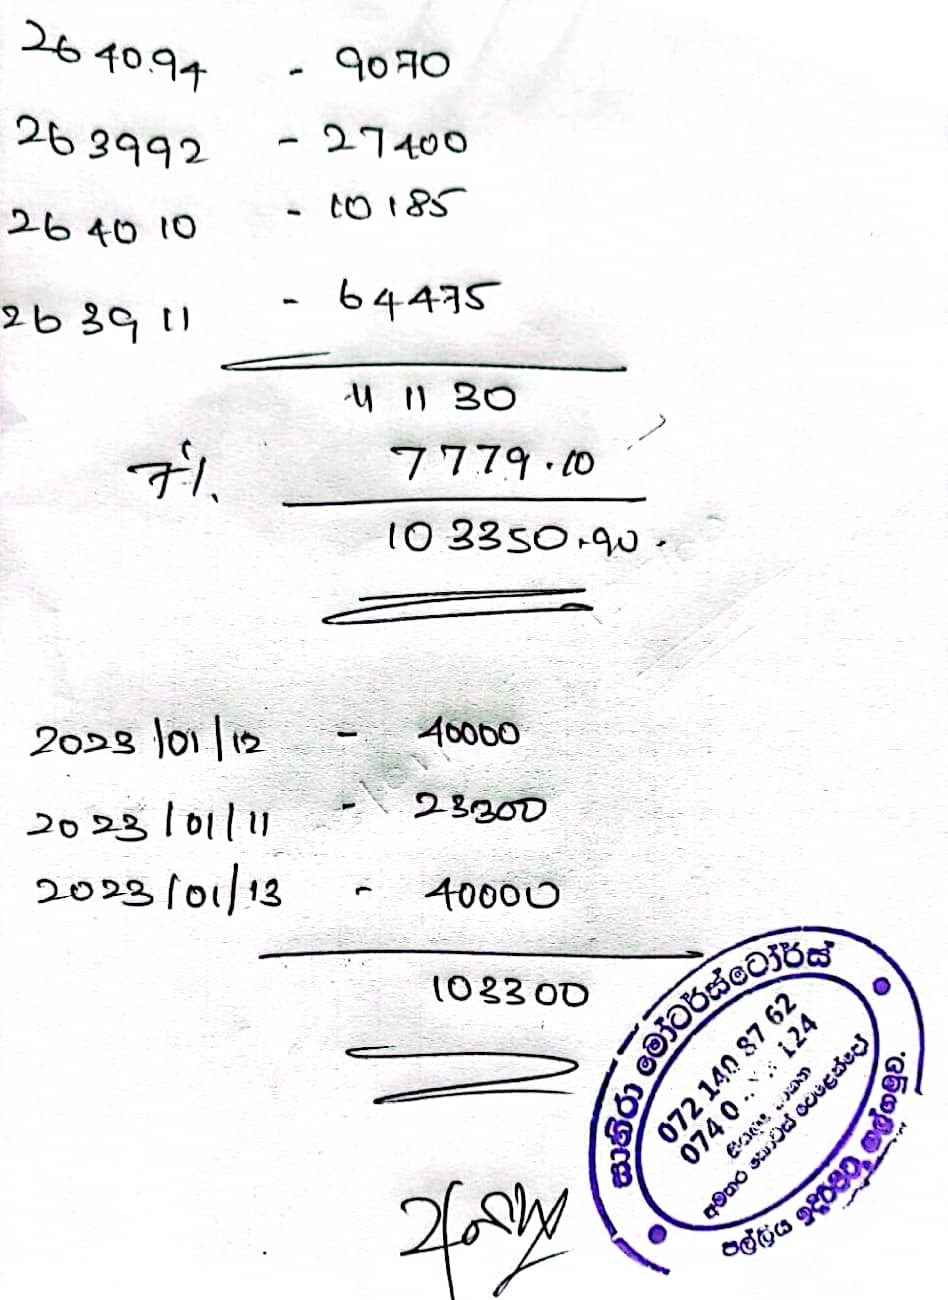 264094 - 9070
263992 - 27400
264010 - 10185
263911 - 64475
11130
7% 7779.10
103350.90.
2023/01/12 - 40000
2023/01/11 - 23300
2023/01/13 - 40000
103300
සාහිරා මෝටර්ස්ටෝර්ස්
072 140 87 62
0740 124
පල්ලිය ඉදිරිපිට ගල්ගමුව.